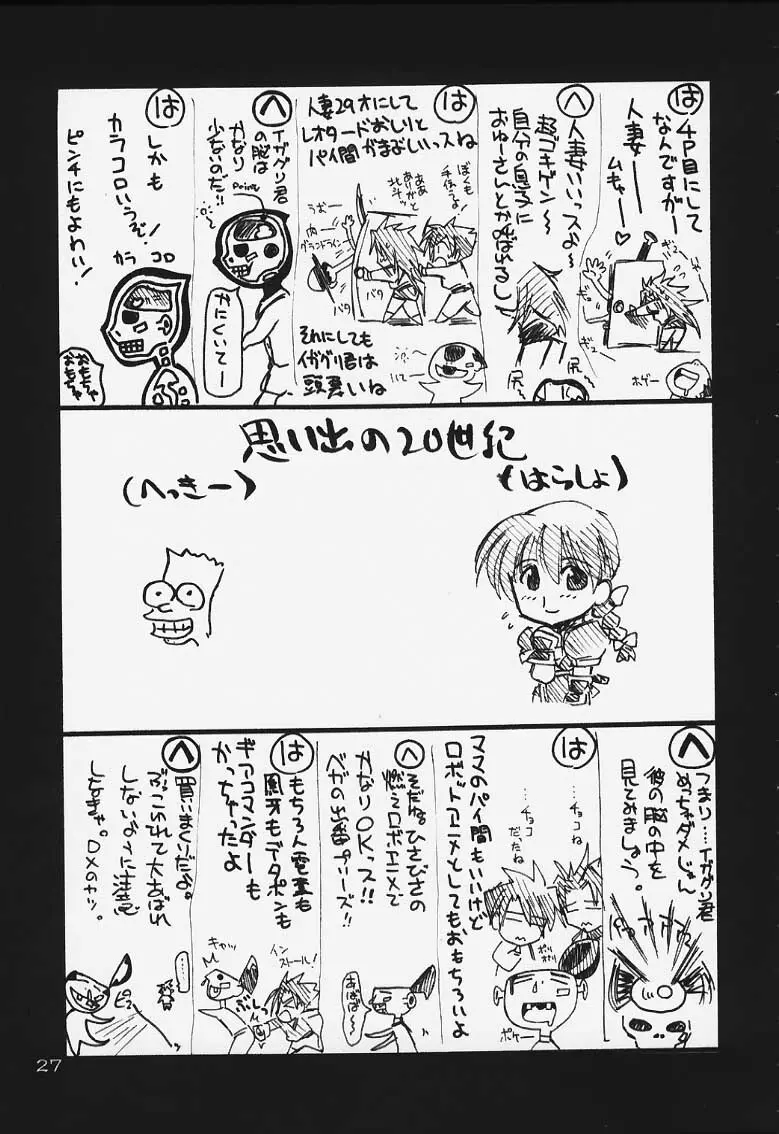 は
4P目にして
なんですがー
人妻ーー
ムキャー♡
ギュー
ギュー
ホゲー
へ
人妻いいっスよ～
超ゴキゲン～
自分の息子に
おゆーさんとかよばれるし
尻
尻
は
人妻29才にして
レオタードおしりと
パイ間かまぼこいいっスね
ぼくも
手伝うよ！
ああ
北斗ッ
うおー
グランドライン
バタ
バタ
それにしても
イガグリ君は
頭悪いね
へ
イガグリ君
の脳は
かなり
少ないのだ!!
Point
かにくいてー
は
しかも
カラコロいうぞ！
ピンチにもよわい！
カラ コロ
おもちゃ
おもちゃ
思い出の20世紀
(はらしょ)
(へっきー)
へ
つまり…イガグリ君
めっちゃダメじゃん
彼の脳の中を
見てみましょう。
は
…チョコね
…チョコ
だったね
ポリ
ポリ
ママのパイ間もいいけど
ロボットアニメとしてもおもちろいよ
ポケー
へ
そだね。ひさびさの
燃えロボアニメで
かなりOKっス!!
ベガの出番プリーズ!!
あばば～
は
もちろん電童も
凰牙もデータポンも
ギアコマンダーも
かっちゃったよ
キャッ
インストール！
へ
買いまくりだよ。
ぶっこわれて大あばれ
しないように注意
しなきゃ。DXのヤツ。
27